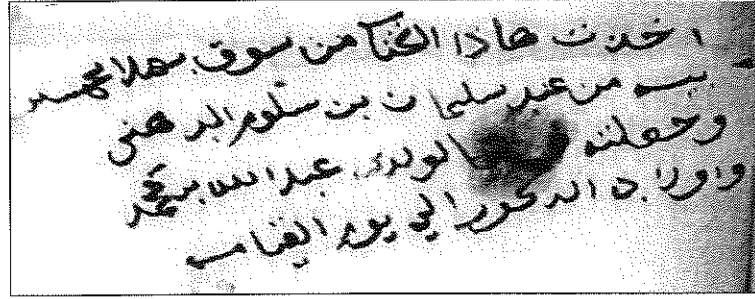 اخذت هاذا الكتاب من سوق بهلا بخمسة
بيسه من عند سليمان بن سلوم الدهني
وجعلته لولدي عبدالله بن محمد
واولاده الدكور الي يوم القيامه